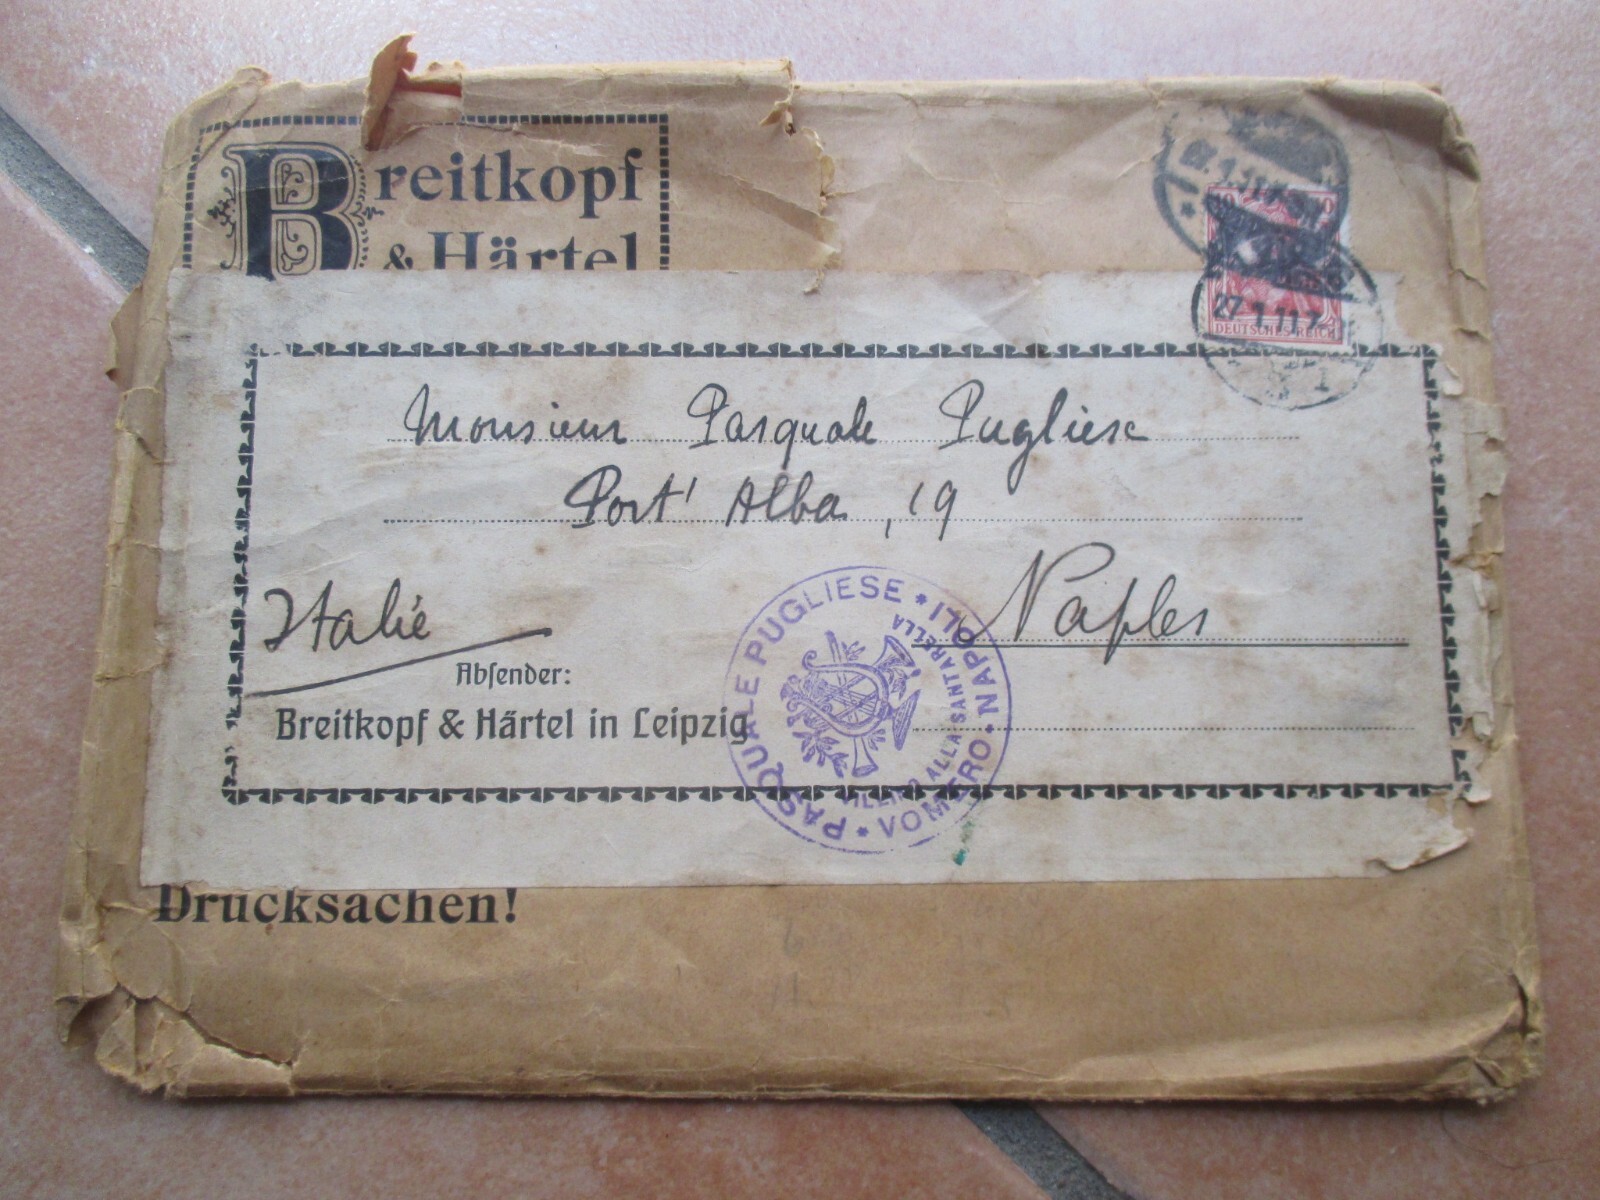 Breitkopf
& Härtel
10 10
27.1.11.7
DEUTSCHES REICH
Monsieur Pasquale Pugliese
Port' Alba, 19
Naples
Italie
Absender:
Breitkopf & Härtel in Leipzig
PASQUALE PUGLIESE * NAPOLI *
VILLINO ALLA SANTARELLA
VOMERO · NAPOLI
Drucksachen!